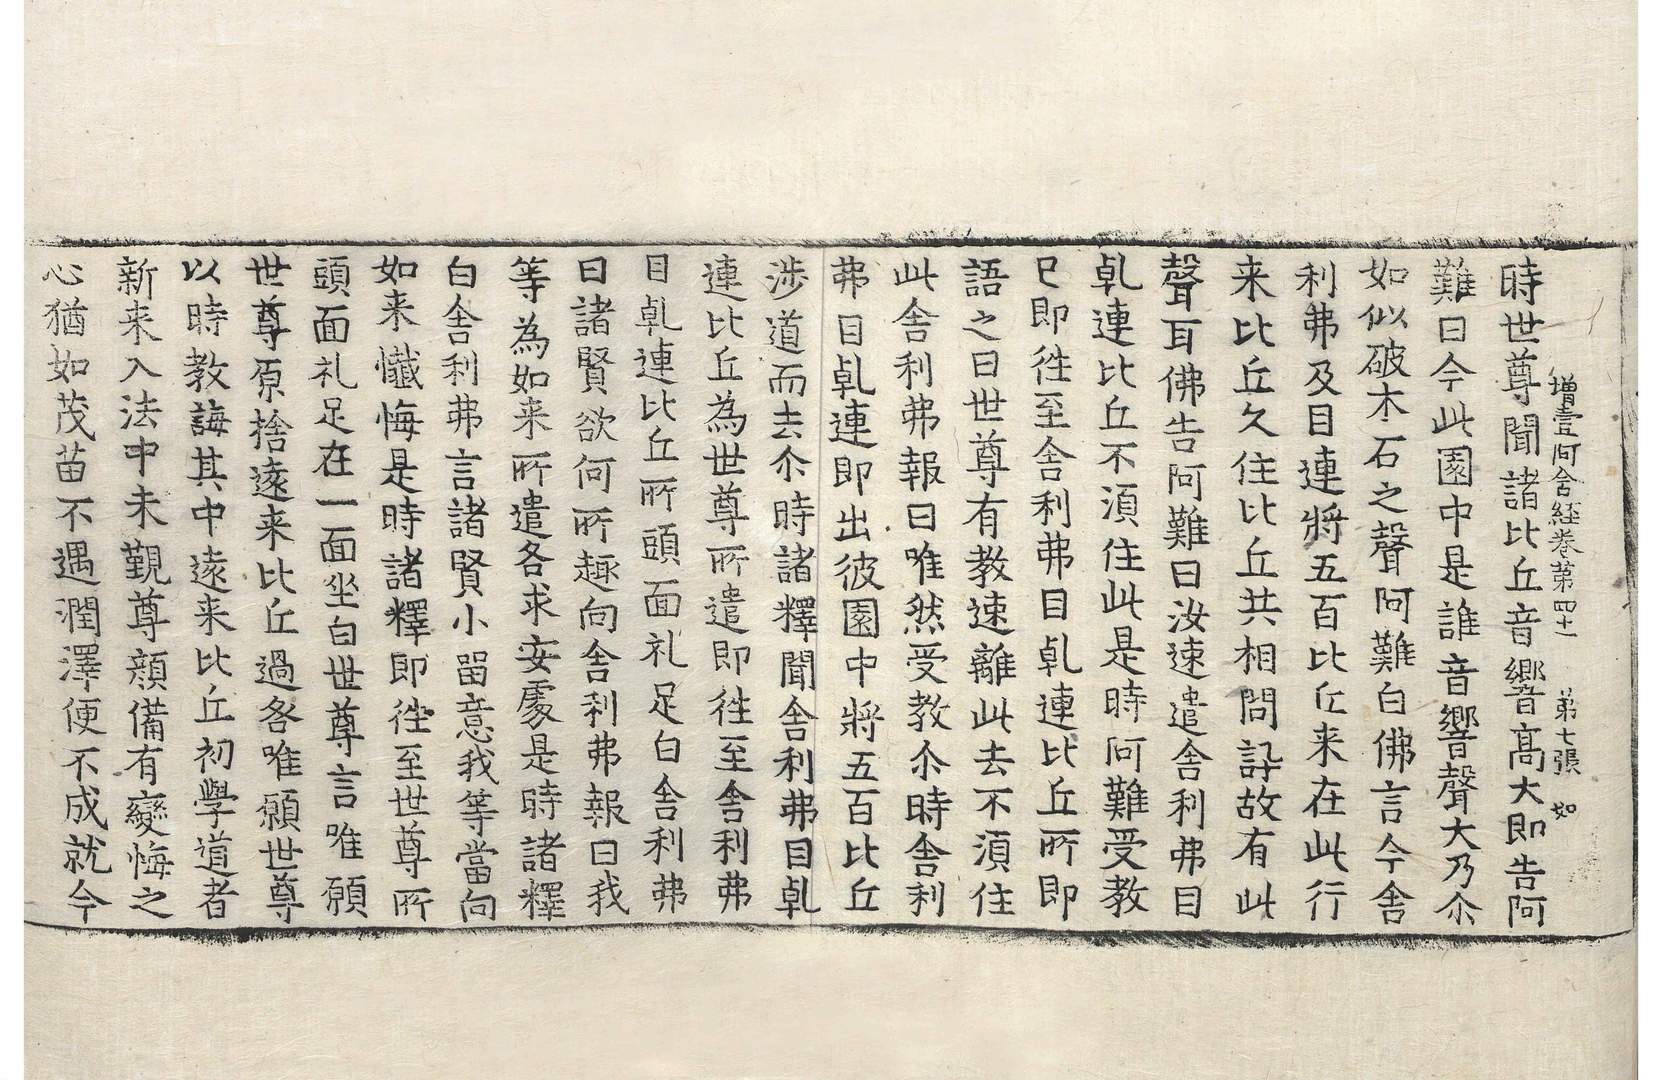 增壹阿含經卷第四十一 第七張 如
時世尊聞諸比丘音響高大即告阿
難曰今此園中是誰音響聲大乃尒
如似破木石之聲阿難白佛言今舍
利弗及目連將五百比丘来在此行
来比丘久住比丘共相問訊故有此
聲耳佛告阿難曰汝速遣舍利弗目
乹連比丘不湏住此是時阿難受教
已即徃至舍利弗目乹連比丘所即
語之曰世尊有教速離此去不湏住
此舍利弗報曰唯然受教尒時舍利
弗目乹連即出彼園中將五百比丘
涉道而去尒時諸釋聞舍利弗目乹
連比丘為世尊所遣即徃至舍利弗
目乹連比丘所頭面礼足白舍利弗
曰諸賢欲何所趣向舍利弗報曰我
等為如来所遣各求安處是時諸釋
白舍利弗言諸賢小留意我等當向
如来懺悔是時諸釋即徃至世尊所
頭面礼足在一面坐白世尊言唯願
世尊原捨遠来比丘過咎唯願世尊
以時教誨其中遠来比丘初學道者
新来入法中未覲尊顏備有變悔之
心猶如茂苗不遇潤澤便不成就今